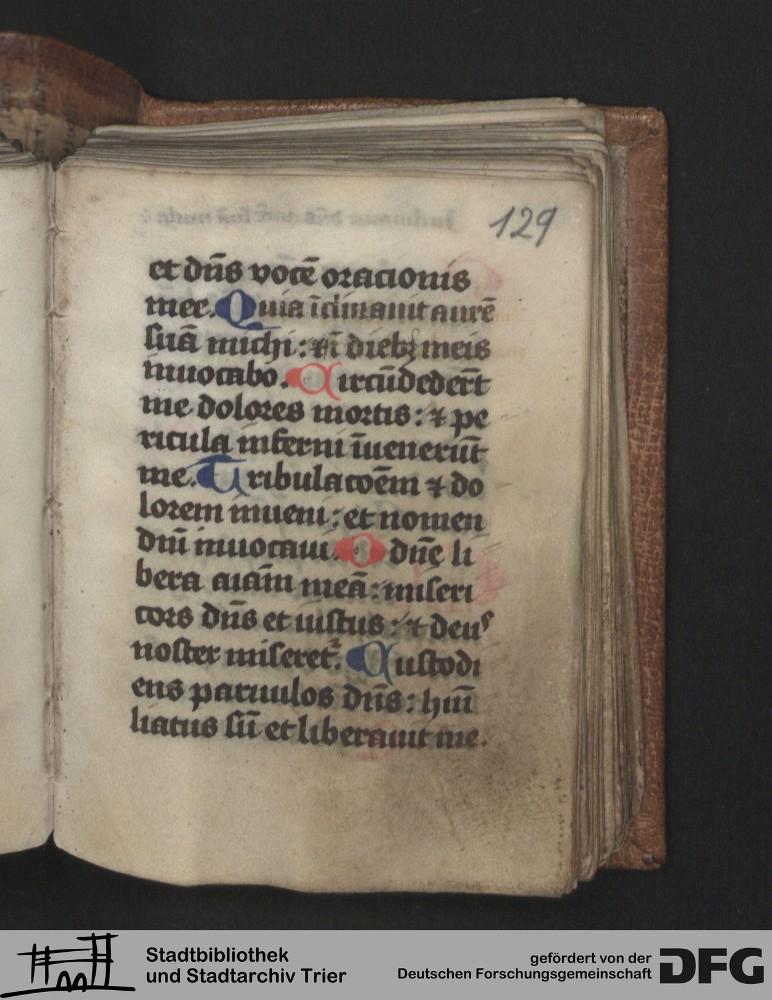 129
et dn̄s vocē oracionis
mee. Quia īclinauit aurē
suā michi : ⁊ ī diebꝫ meis
inuocabo. Circūdedert̄
me dolores mortis : ⁊ pe
ricula inferni īueneriūt
me. Tribulacoēm ⁊ do
lorem inueni : et nomen
dnī inuocaui. O dnē li
bera aīam meā : miseri
cors dn̄s et iustus : ⁊ deuꝰ
noster miseret᷑. Custodi
ens paruulos dn̄s : hūi
liatus sū et liberauit me.
Stadtbibliothek
und Stadtarchiv Trier
gefördert von der
Deutschen Forschungsgemeinschaft
DFG